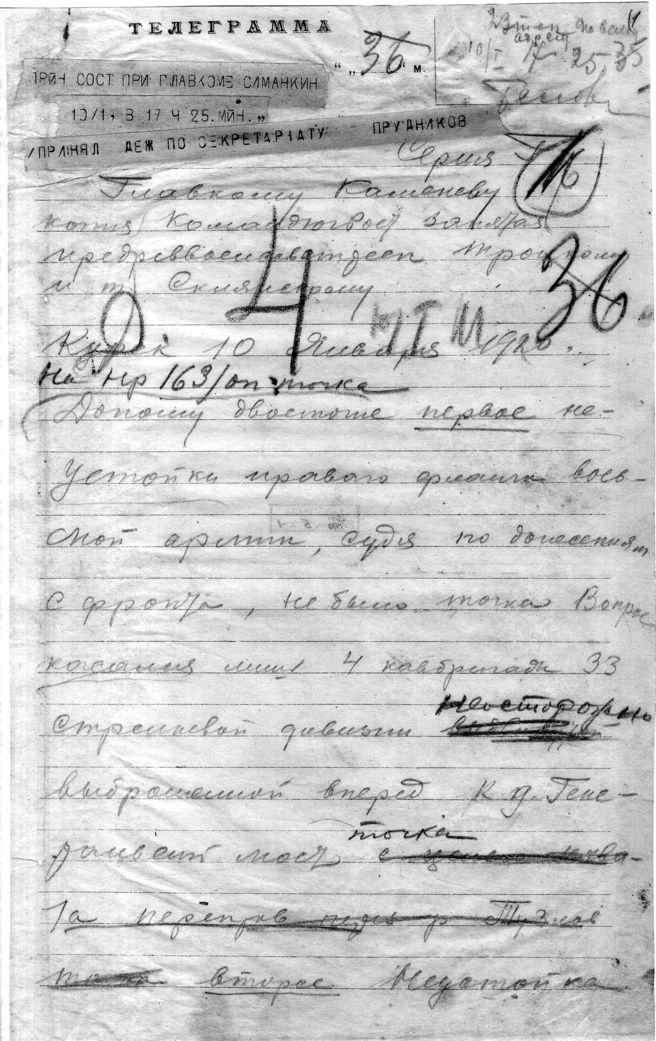 ТЕЛЕГРАММА
" „ 36 м.
10/I 17 25 35
ПРИН СОСТ ПРИ ГЛАВКОМЕ СИМАНКИН
10/1, В 17 Ч 25.МИН.„
/ПРИНЯЛ ДЕЖ ПО СЕКРЕТАРІАТУ ПРУДНИКОВ
Серия
Главкому Каменеву
копия Командюгвост занятая
предреввоенсовет Троцкому
и т Склянскому
4 36
Курск 10 Января 1920
На нр 163/оп точка
Доношу двоеточие первое не-
устойки правого фланга вось-
мой армии, судя по донесениям
с фронта, не было точка Вопрос
касался лишь 4 кавбригады 33
стрелковой дивизии неосторожно
выброшенной вперед к д. Гене-
ральский мост точка
та переправ через р Тузлов
точка второе Неустойка